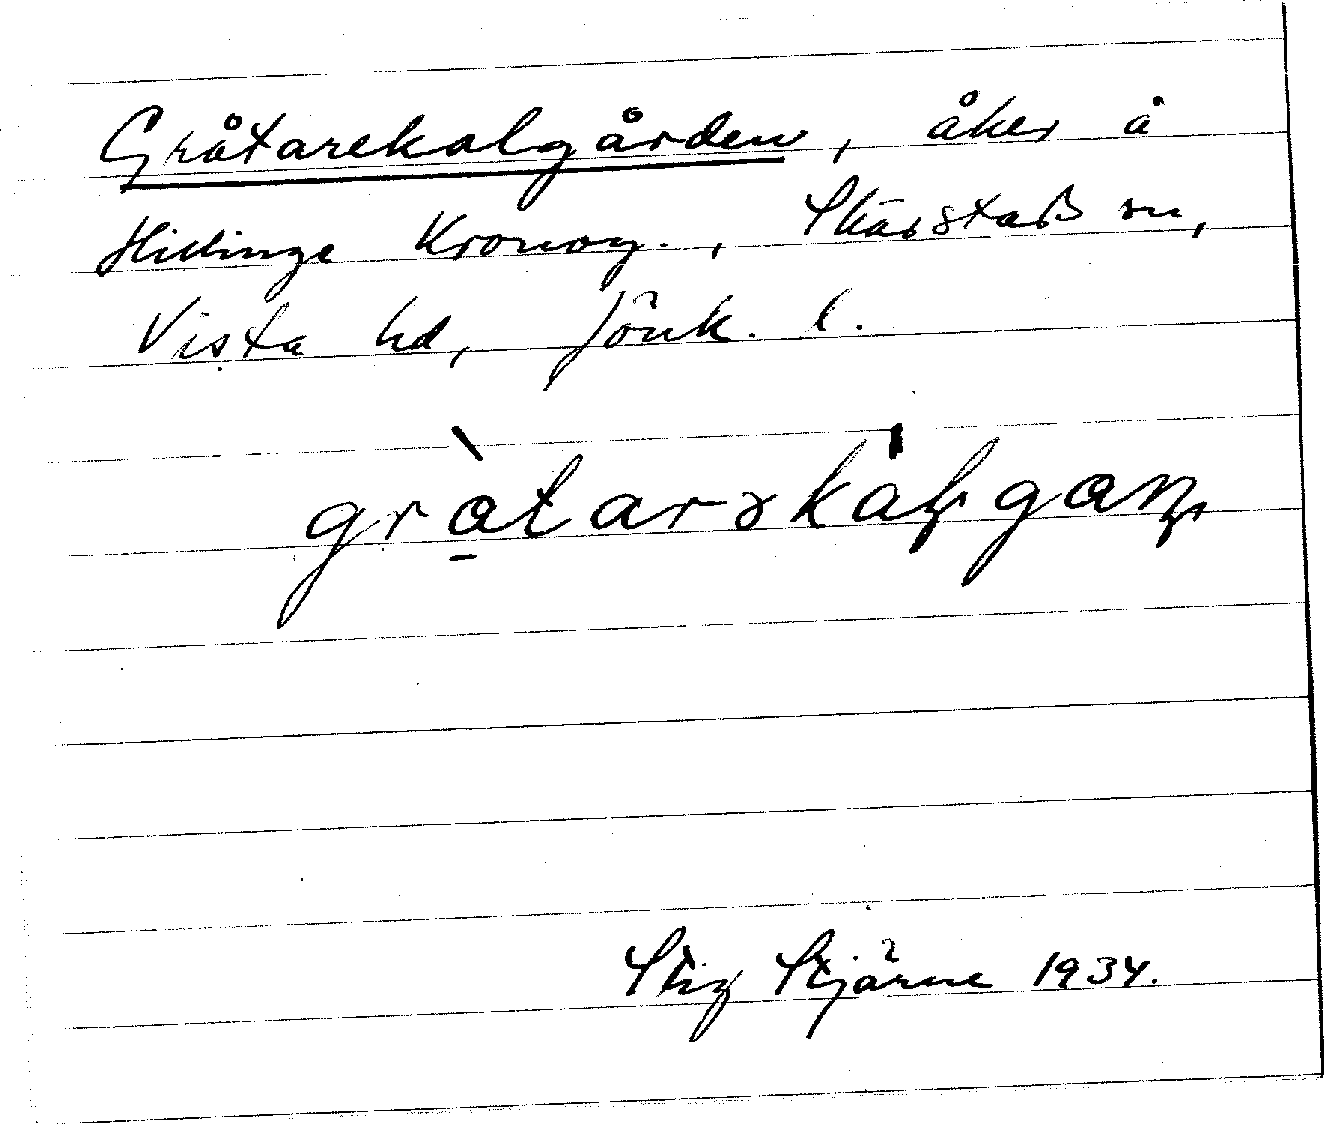 Gråtarekalgården, åker å
Hillinge Kronog., Skärstad sn,
Vista hd, Jönk. l.
Stig Stjärne 1934.